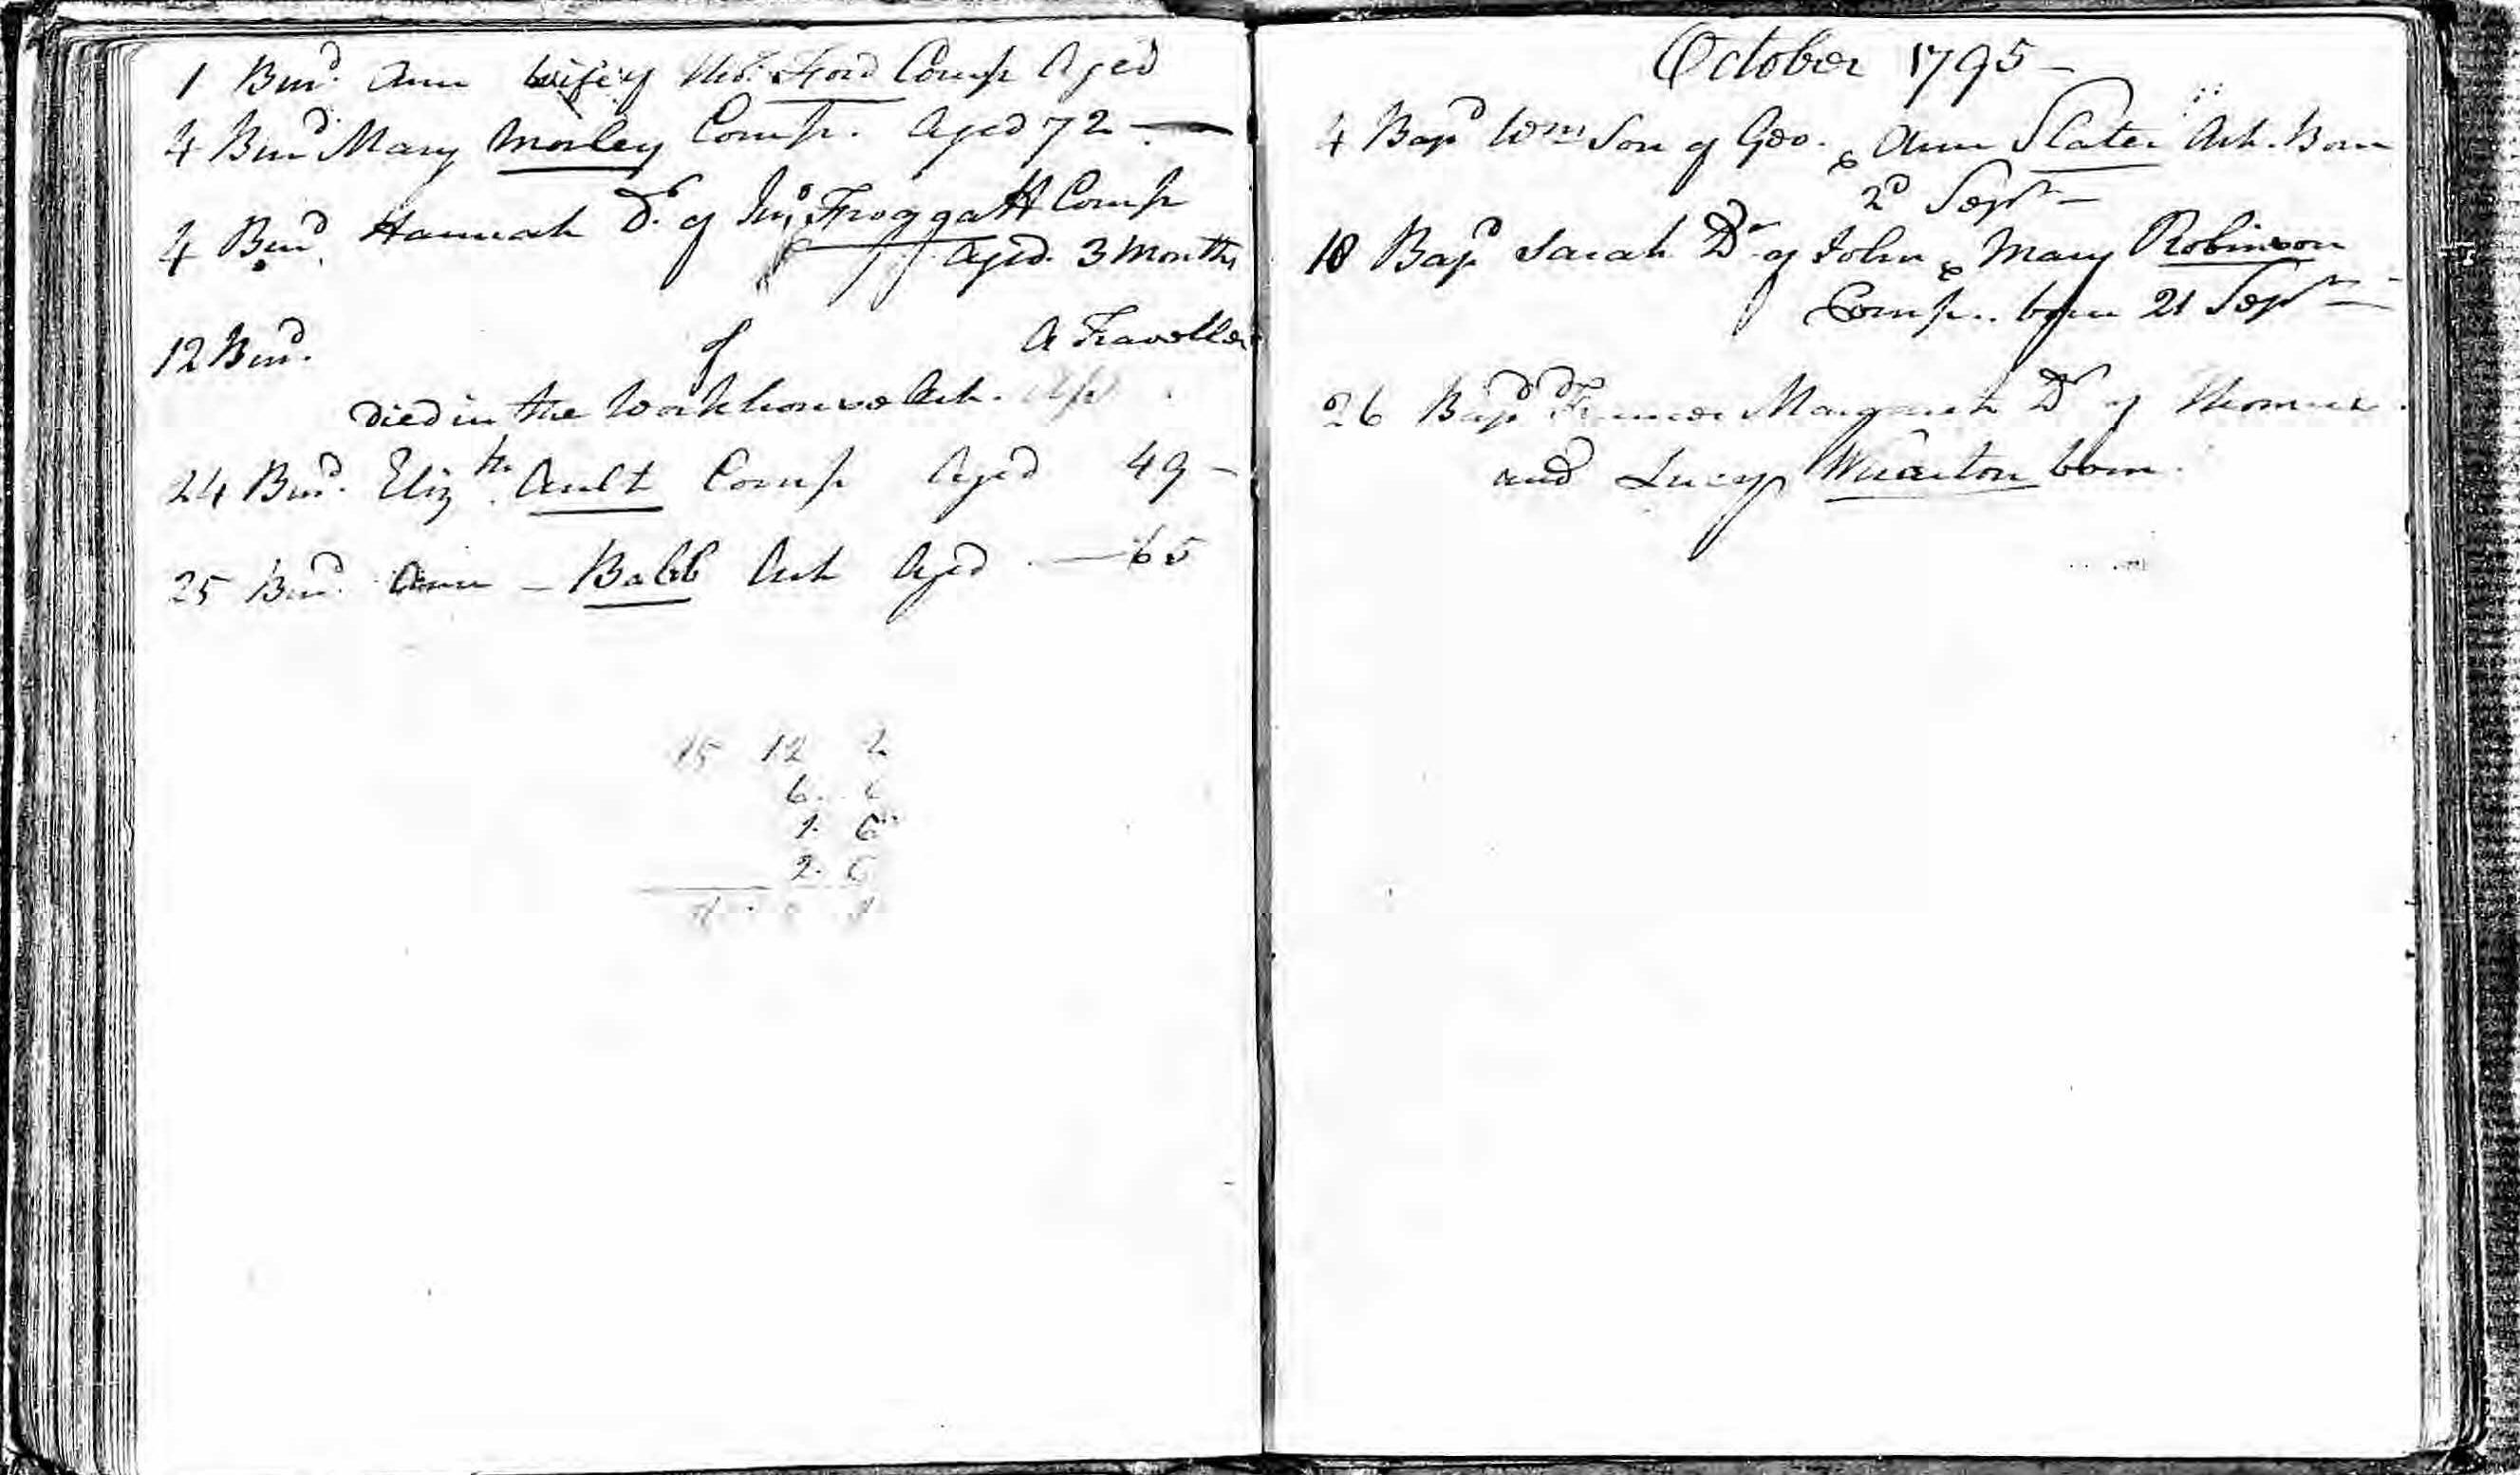 1 Burd. Ann wife of Thos. Ford Comp Aged
4 Burd Mary Morley Comp. Aged 72 —
4 Burd. Hannah Dr. of Jno. Froggatt Comp
Aged. 3 Months
12 Burd. of A Traveller
Died in the Workhouse Ash.
24 Burd. Elizth. Ault Comp Aged 49 -
25 Burd. Ann - Babb Ash Aged — 65
15 12 2
6
1. 6
2. 6
October 1795 -
4 Bapd Wm Son of Geo. & Ann Slater Ash. Born
2d Septr -
18 Bapd Sarah Dr of John & Mary Robinson
Comp.. born 21 Septr -
26 Bapd Frances Margaret Dr of Thomas
and Lucy Wharton born